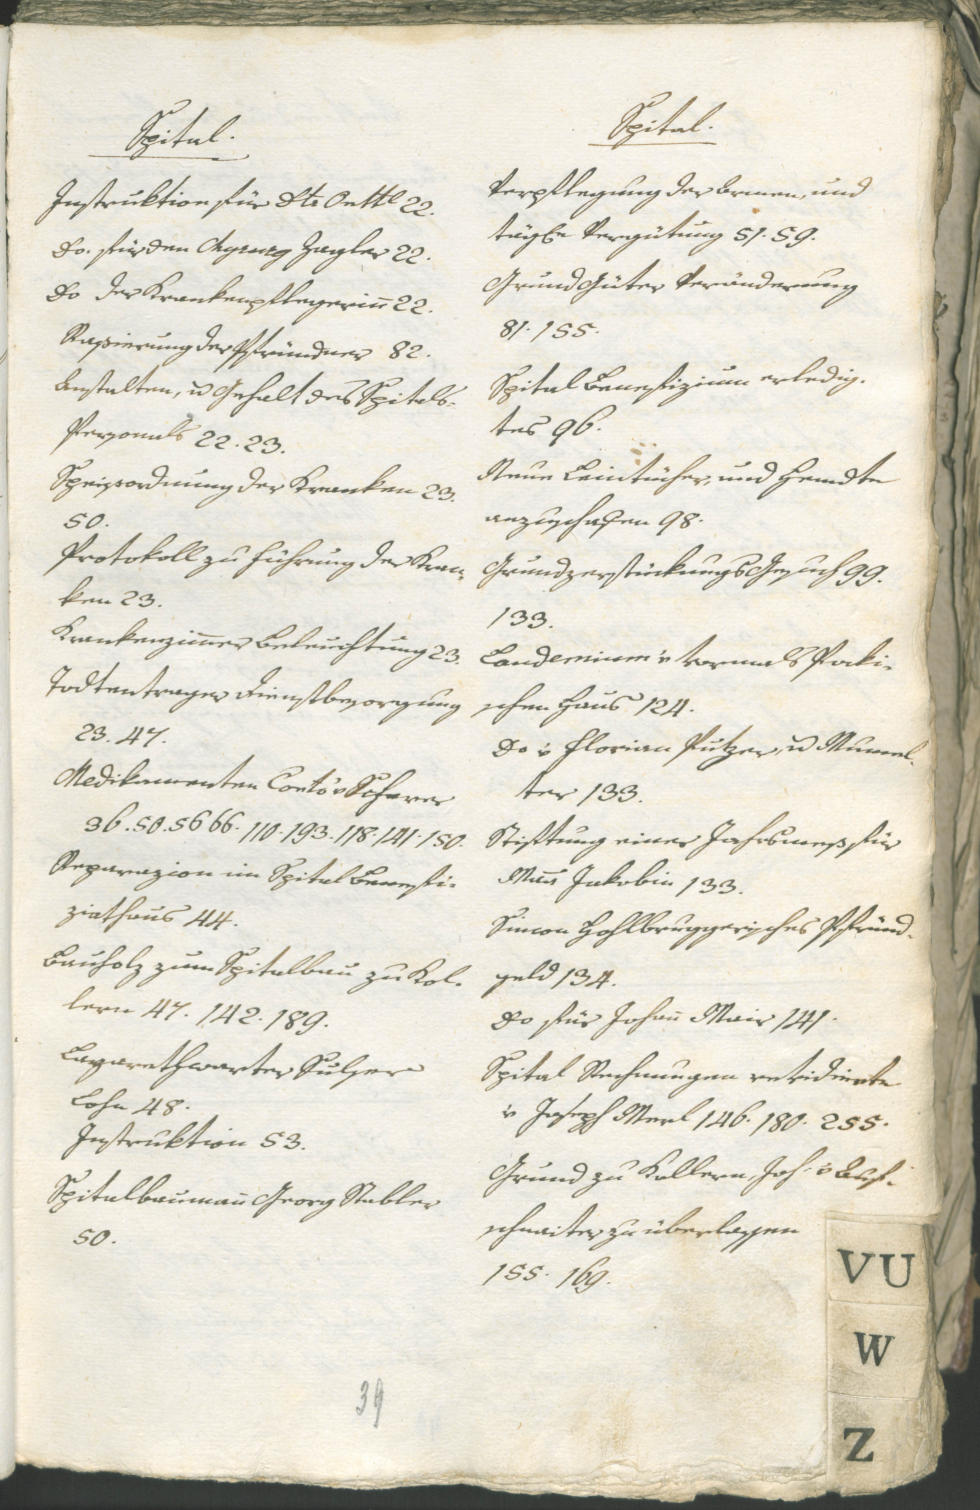 Spital.
Instruktion für Dr. Oettl 22.
Do. für den Chyrurg Zangler 22.
Do der Krankenpflegerin̄ 22.
Rasierung der Pfründner 82.
Anstalten, u Gehalt des Spitals-
Personals 22. 23.
Speisordnung der Kranken 23.
50.
Protokoll zu führung der Kran-
ken 23.
Krankenzim̄er Beleuchtung 23.
Todtentrager Dienstbesorgung
23. 47.
Medikamenten Conto v Scharer
36. 50. 56 66. 110. 193. 118. 141. 150.
Reparazion im Spital Benefi-
ziathaus 44.
Bauholz zum Spitalbau zu Kol-
lern 47. 142. 189.
Lazarethwarter Sulzer
Lohn 48.
Instruktion 53.
Spitalbauman̄ Georg Stabler
50.
Spital.
Verpflegung der Armen, und
tägle Vergütung 51. 59.
Grund Güter Veränderung
81. 155.
Spital Benefizium erledig-
tes 96.
Neue Leintücher, und Hemdte
anzuschafen 98.
Grundzerstückungs Gesuch 99.
133.
Laudemium v vormals Poki-
schen Haus 124.
Do v Florian Putzer, u Mumel-
ter 133.
Stiftung einer Jahrsmess für
Jakobin 133.
Simon Hohlbruggerisches Pfründ-
geld 134.
Do für Johan̄ Mair 141.
Spital Rechnungen revidierte
v Joseph Merl 146. 180. 255.
Grund zu Kollern Joh. v
schnaiter zu überlassen
155. 169.
39
VU
W
Z